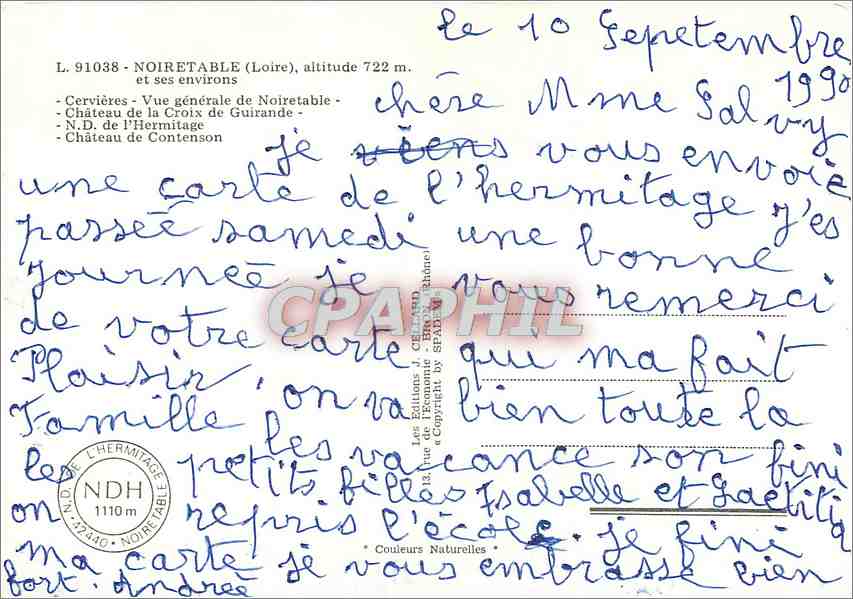 le 10 Sepetembre
1990
L. 91038 - NOIRETABLE (Loire), altitude 722 m.
et ses environs
- Cervières - Vue générale de Noiretable -
- Château de la Croix de Guirande -
- N.D. de l'Hermitage
- Château de Contenson
chère Mme Salvy
je viens vous envoie
une carte de l'hermitage j'es
passeé samedi une bonne
journeé je vous remerci
de votre carte qui ma fait
Plaisir, on va bien toute la
Famille les vacance son fini
les petits filles Isabelle et Laetitia
on repris l'école. je fini
ma carte je vous embrasse bien
fort. Andreé
CPAPHIL
Les Editions J. CELLARD
13, rue de l'Economie - BRON (Rhône)
« Copyright by SPADEM »
N.D. DE L'HERMITAGE
NDH
1110 m
42440 • NOIRETABLE
" Couleurs Naturelles "